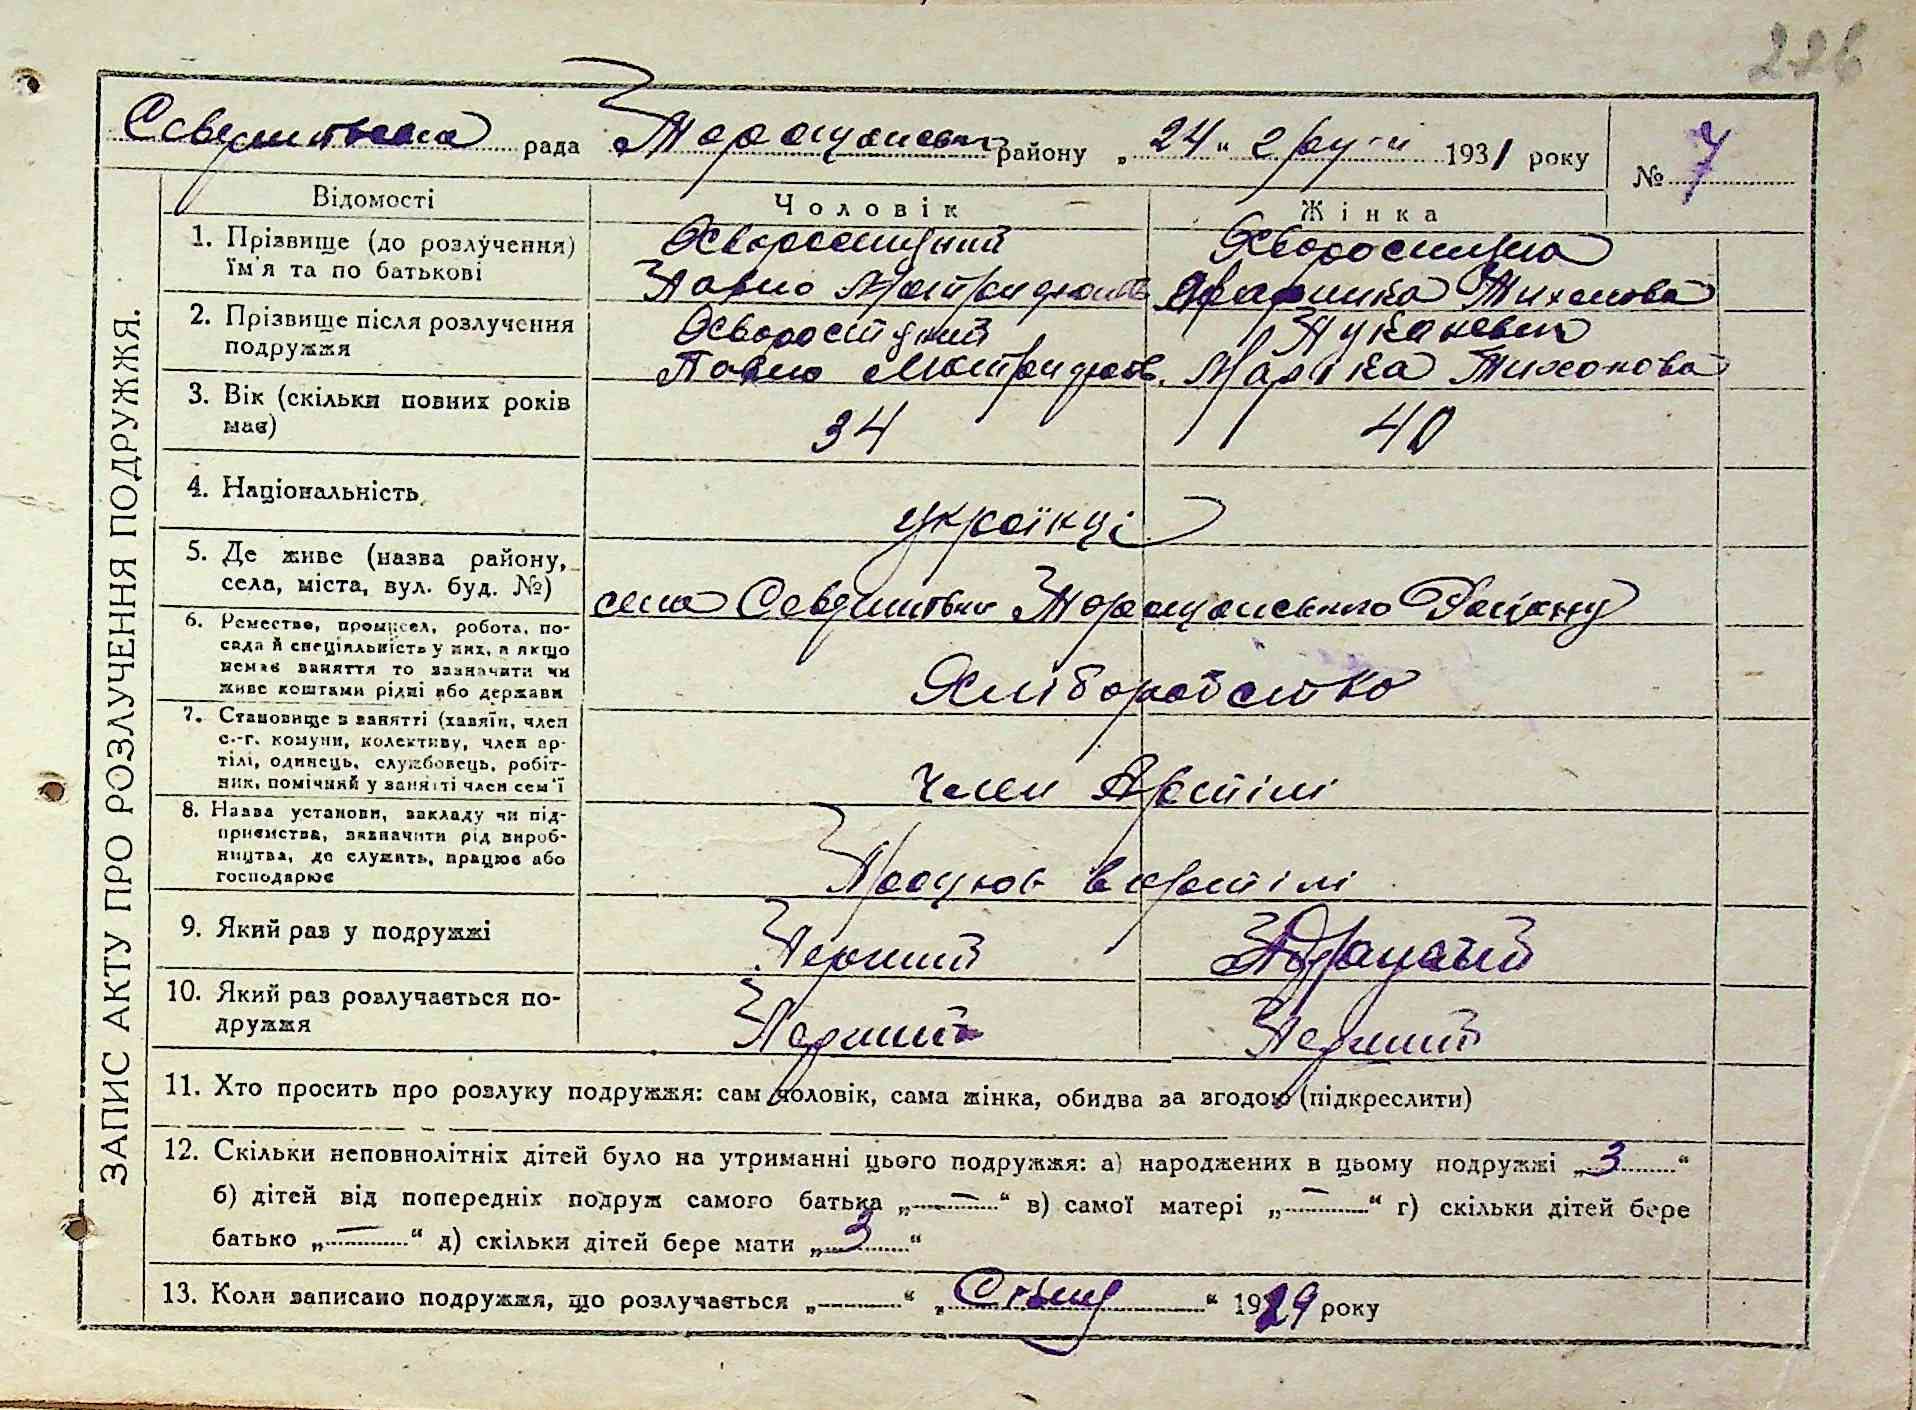 226
рада району „24“ груд 1931 року
№ 7
ЗАПИС АКТУ ПРО РОЗЛУЧЕННЯ ПОДРУЖЖЯ.
Відомості Чоловік Жінка
1. Прізвище (до розлучення) Хворостицний Хворостицна
їм'я та по батькові Павло Тихонова
2. Прізвище після розлучення Хворостицний
подружжя Павло Марійка Тихонова
3. Вік (скільки повних років
має) 34 40
4. Національність українці
5. Де живе (назва району,
села, міста, вул. буд. №) село Району
6. Ремество, промисел, робота, по-
сада й спеціяльність у них, а якщо
немає заняття то зазначити чи
живе коштами рідні або держави Хліборобство
7. Становище в занятті (хазяїн, член
с.-г. комуни, колективу, член ар-
тілі, одинець, службовець, робіт-
ник, помічний у занятті член сем'ї член Артілі
8. Назва установи, закладу чи під-
приємства, зазначити рід вироб-
ництва, де служить, працює або
господарює Працюв в артілі
9. Який раз у подружжі Перший
10. Який раз розлучається по-
дружжя Перший Перший
11. Хто просить про розлуку подружжя: сам чоловік, сама жінка, обидва за згодою (підкреслити)
12. Скільки неповнолітніх дітей було на утриманні цього подружжя: а) народжених в цьому подружжі „3“
б) дітей від попередніх подруж самого батька „—“ в) самої матері „—“ г) скільки дітей бере
батько „—“ д) скільки дітей бере мати „3“
13. Коли записано подружжя, що розлучається „—“ „ “ 1929 року